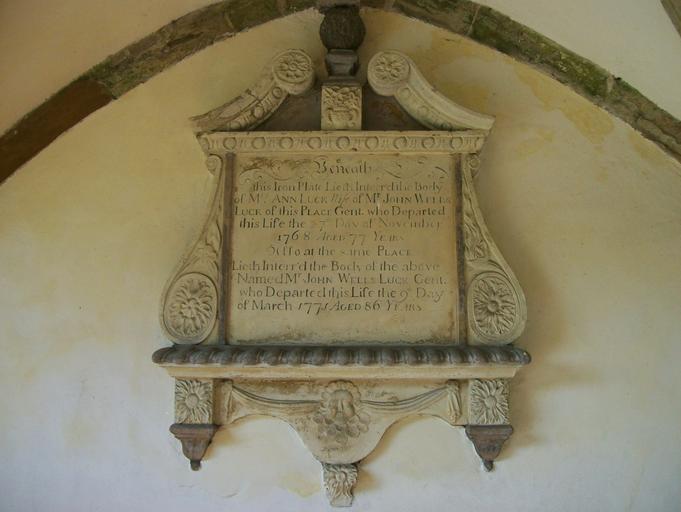 Beneath
this Iron Plate Lieth Interr'd the Body
of Mrs. ANN LUCK Wife of Mr. JOHN WELLS
LUCK of this PLACE Gent. who Departed
this Life the 7th Day of November
1768 AGED 77 YEARS
Also at the same PLACE
Lieth Interr'd the Body of the above
Named Mr. JOHN WELLS LUCK Gent.
who Departed this Life the 9th Day
of March 1771 AGED 86 YEARS